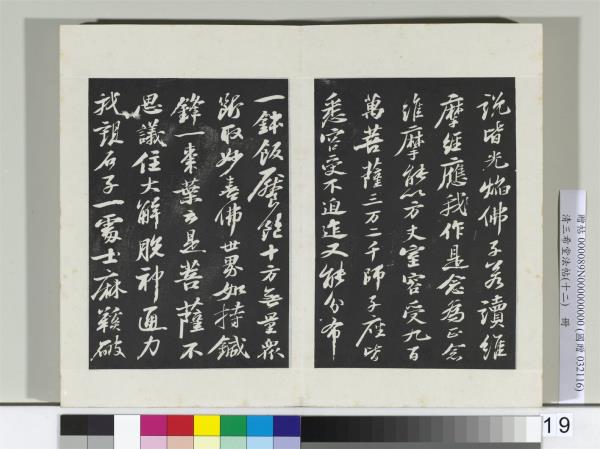 說皆光焰佛子若讀維
摩經應我作是念為正念
維摩能以方丈室容受九百
萬菩薩三万二千師子座皆
悉容受不迫迮又能分布
一鉢飯饜飽十方無量衆
斷取妙喜佛世界如持鍼
鋒一棗葉云是菩薩不
思議住大解脫神通力
我觀石子一處士麻鞋破
贈帖 000089N000000000 (國贈 032116)
清三希堂法帖(十二) 冊
19